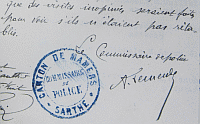 que des visites inopinées seraient faites
pour voir s'ils n'étaient pas réta-
blis.
Le Commissaire de police
CANTON DE MAMERS
COMMISSAIRE
DE
POLICE
SARTHE